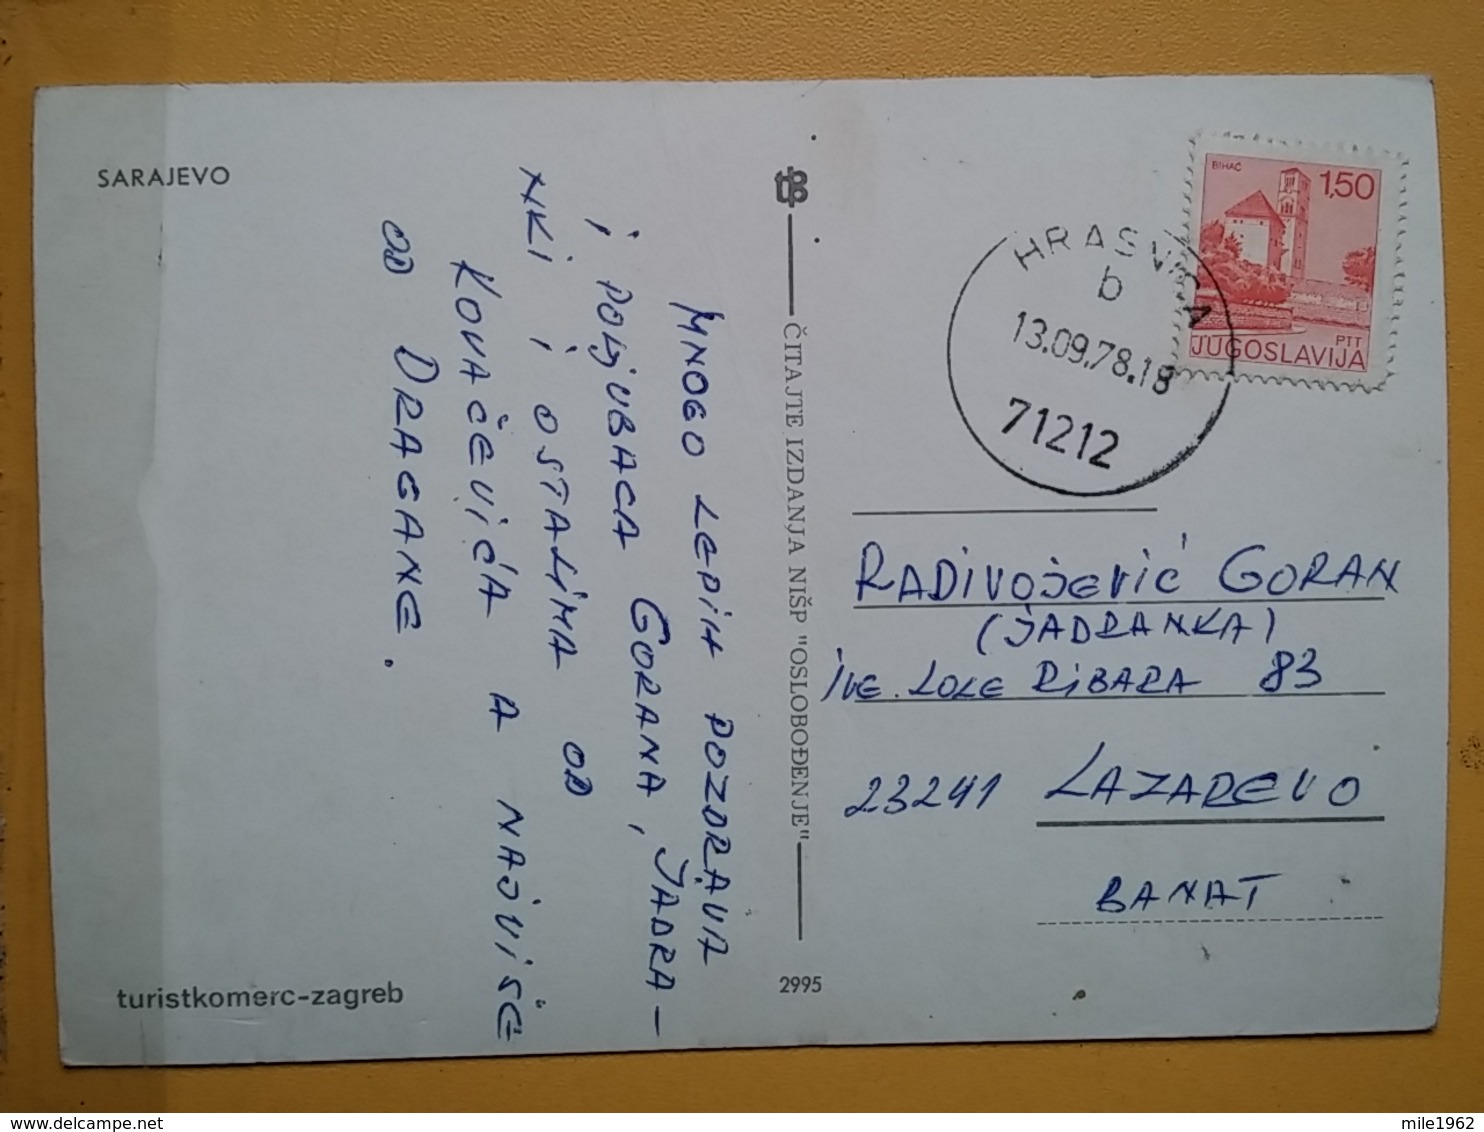 SARAJEVO
MNOGO LEPIH POZDRAVA
I POLJUBACA GORANA, JADRA-
NKI I OSTALIMA OD
KOVAČEVIĆA A NAJVIŠE
OD DRAGANE.
turistkomerc-zagreb
ČITAJTE IZDANJA NIŠP "OSLOBOĐENJE"
2995
BIHAĆ
1,50
PTT
JUGOSLAVIJA
HRASNICA
b
13.09.78.18
71212
RADIVOJEVIĆ GORAN
(JADRANKA)
IVE LOLE RIBARA 83
23241 LAZAREVO
BANAT
mile1962